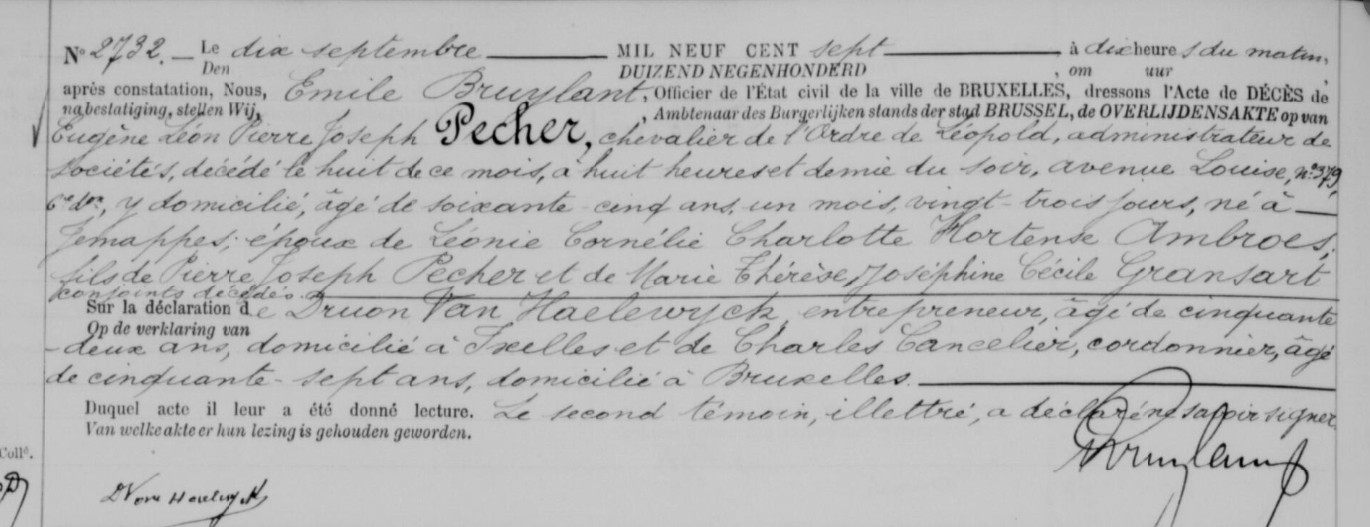 N° 2732. — Le dix septembre — MIL NEUF CENT sept — à dix heures du matin,
Den DUIZEND NEGENHONDERD , om uur ,
après constatation, Nous, Emile Bruylant, Officier de l'État civil de la ville de BRUXELLES, dressons l'Acte de DÉCÈS de
na bestatiging, stellen Wij, , Ambtenaar des Burgerlijken stands der stad BRUSSEL, de OVERLIJDENSAKTE op van
Eugène Léon Pierre Joseph Pecher, chevalier de l'Ordre de Léopold, administrateur de
sociétés, décédé le huit de ce mois, à huit heures et demie du soir, avenue Louise, n° 379,
6e don, y domicilié, âgé de soixante-cinq ans, un mois, vingt-trois jours, né à —
Jemappes; époux de Léonie Cornélie Charlotte Hortense Ambroes;
fils de Pierre Joseph Pecher et de Marie Thérèse Joséphine Cécile Gransart
conjoints décédés. —
Sur la déclaration de Druon Van Haelewyck, entrepreneur, âgé de cinquante
Op de verklaring van
-deux ans, domicilié à Ixelles et de Charles Cancelier, cordonnier, âgé
de cinquante-sept ans, domicilié à Bruxelles. —
Duquel acte il leur a été donné lecture. Le second témoin, illettré, a déclaré ne savoir signer
Van welke akte er hun lezing is gehouden geworden.
Collé.
D Van Haelewyck
Bruylant